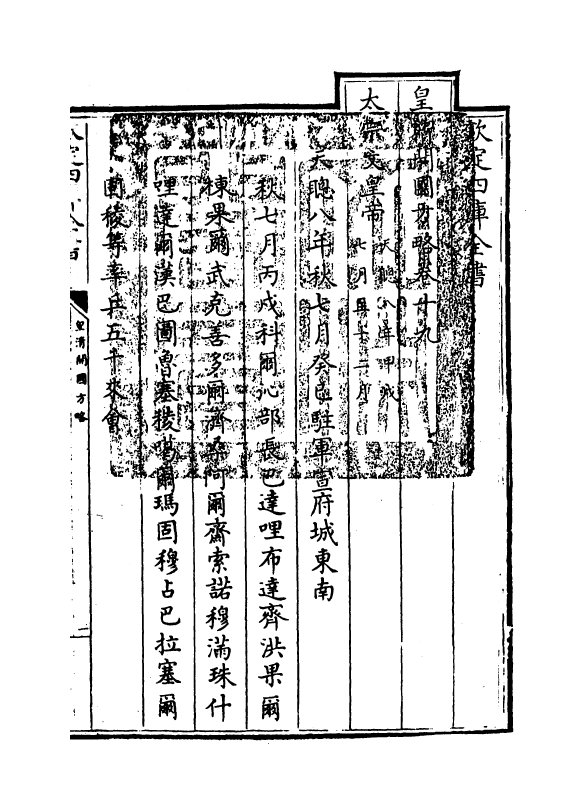 欽定四庫全書
皇清開國方略卷十九
太宗文皇帝
天聰八年秋七月癸巳駐軍宣府城東南
秋七月丙戌科爾沁部長巴達哩布達齊洪果爾
棟果爾武克善多爾濟桑阿爾齋索諾穆滿珠什
哩達爾漢巴圖魯塞稜噶爾瑪固穆占巴拉塞爾
固稜等率兵五千來會
皇清開國方略